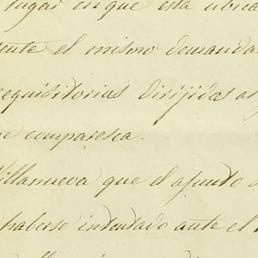 lugar en que está ubica
ente el mismo demanda
requisitorias dirijidas a
comparesca.
Villanueva que el asunto
haberse intentado ante el